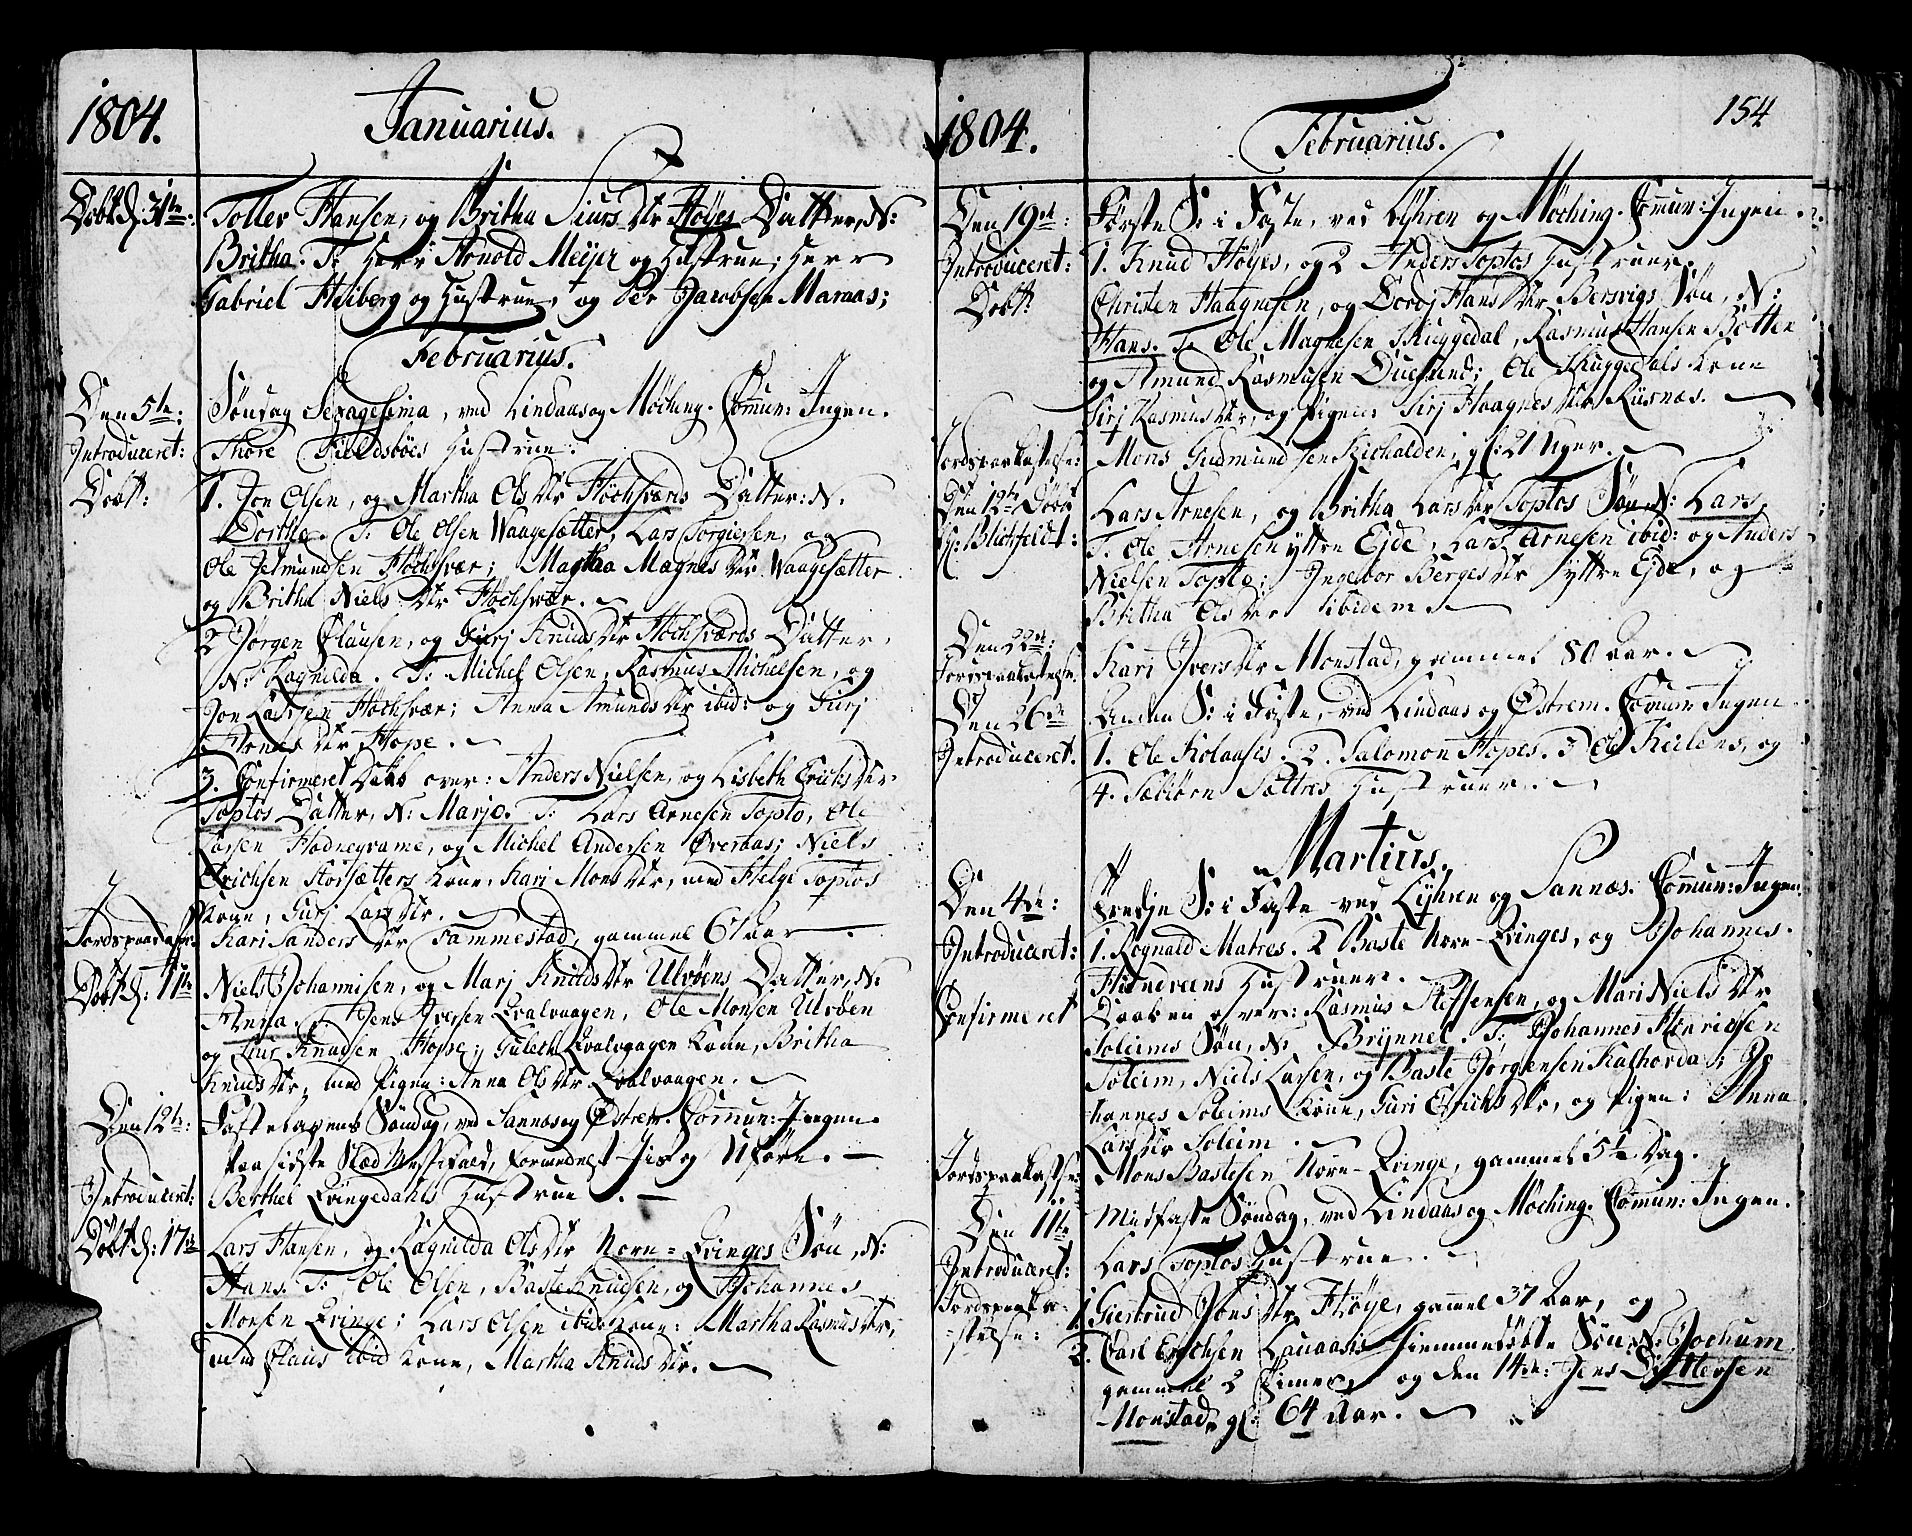 1804. Januarius.
Döbt d: 31te: Toller Hansen, og Britha Siurs Dtr Höyes Datter, N:
Britha. T: Herr Arnold Meijer og Hustrue; Herr
Gabriel Heiberg og Hustrue, og Per Jacobsen Maraas;
Februarius.
Den 5te: Söndag Sexagesima, ved Lindaas og Möching. Commun: Ingen.
Introduceret: Thore Fieldsböes Hustrue:
Döbt: 1. Jon Olsen, og Martha Ols Dtr Höchsværds Datter: N.
Dorthe. T: Ole Olsen Waagesætter, Lars Torgiersen, og
Ole Jetmundsen Höchsvær; Martha Magnes Dtr Waagesætter
og Britha Niels Dtr Höchsvær.
2 Jörgen Clausen, og Gurj Knuds Dtr Höchsværds Datter,
N: Ragnilda. T: Michel Olsen, Rasmus Michelsen, og
Jon Larssen Höchsvær; Anna Amunds Dtr ibid: og Gurj
Dtr Hope.
3. Confirmeret Daab over: Anders Nielsen, og Lisbeth Erichs Dtr
Toptos Datter, N: Marje. T: Lars Arnesen Topto, Ole
Larsen Hodnegrame, og Michel Andersen Överaas; Niels
Erichsen Storsætters Kone, Kari Mons Dtr, med Helge Toptos
Kone, Gurj Lars Dtr.
Jordspaakastelse: Kari Sanders Dtr Fammestad, gammel 61 aar
Döbt d: 11te Niels Johannisen, og Marj Knuds Dtr Ulvöens Datter, N:
Anna. T: Jens Iversen Qvalvaagen, Ole Monsen Ulvöen
og Siur Knudsen Hope; Guleth Qvalvaagen Kone, Britha
Knuds Dtr, med Pigen: Anna Ols Dtr Qvalvaagen.
Den 12te: Fastelavens Söndag, ved Sannes og Östrem. Commun: Ingen.
paa sidste Stæd Messefald, formedelst Jis og Uföre.
Introduceret: Berthel Qvingedahls Hustrue.
Döbt d: 17de Lars Hansen, og Ragnilda Ols Dtr Norn-Qvinges Sön, N:
Hans. T: Ole Olsen, Baste Knudsen, og Johannes
Monsen Qvinge; Lars Olsen ibid Kone: Martha Rasmus Dtr,
med Claus ibid Kone, Martha Knuds Dtr.
1804. Februarius. 154
Den 19de: Förste S: i Faste, ved Lyhren og Möching. Commun: Ingen.
Introduceret: 1. Knud Höyes, og 2 Anders Toptos Hustruer.
Döbt: Christen Haagnesen, og Dordj Hans Dtr Bersvigs Sön, N:
Hans. T: Ole Magnesen Skuggedal, Rasmus Hansen Botten
og Amund Rasmusen Duesund; Ole Skuggedals Kone
Sirj Rasmus Dtr, og Pigen: Sirj Haagnes Dtr Risnæs.
Jordspaakastelse: Mons Gudmundsen Kichalden, gl: 21 Uger.
Den 12te Döbt Lars Arnesen, og Britha Lars Dtr Toptos Sön N: Lars.
Hr: Blichfeldt: T: Ole Arnesen yttre Ejde, Lars Arnesen ibid: og Anders
Nielsen Topto; Ingebor Berges Dtr yttre Ejde, og
Britha Ols Dtr ibidem
Den 22de: Kari Ivers Dtr Monstad, gammel 80 aar.
Jordspaakastelse.
Den 26de Anden S: i Faste, ved Lindaas og Östrem. Commun Ingen
Introduceret. 1. Ole Kolaases. 2. Salomon Hopes. 3 Ole Keilens, og
4. Sæbiörn Sættres Hustruer.
Martius.
Den 4de: Tredje S: i Faste ved Lyhren og Sannes. Commun: Ingen.
Introduceret: 1. Rognald Matres. 2 Baste Norn-Qvinges, og Johannes
Hundveens Hustruer.
Confirmeret Daaben over: Rasmus Steffensen, og Mari Niels Dtr
Soleims Sön, N: Brynnel. T: Johannes Henricsen
Soleim, Niels Larsen, og Baste Jörgensen Kalhovda; Jo
hannes Soleims Kone, Guri Erichs Dtr, og Pigen: Anna
Lars Dtr Soleim.
Jordspaakastelse Mons Bastesen Norn-Qvinge, gammel 5te Dag.
Den 11te Midfaste Söndag, ved Lindaas og Möching. Commun: Ingen.
Introduceret: Lars Toptos Hustrue.
Jordspaaka- 1. Giertrud Jons Dtr Höye, gammel 37 Aar, og
-stelse: 2. Carl Erichsen Lauaasis hiemmedöbte Sön N: Jochum,
gammel 2 Timer, og den 14de: Jens Ditlevsen
Monstad, gl: 64 aar.